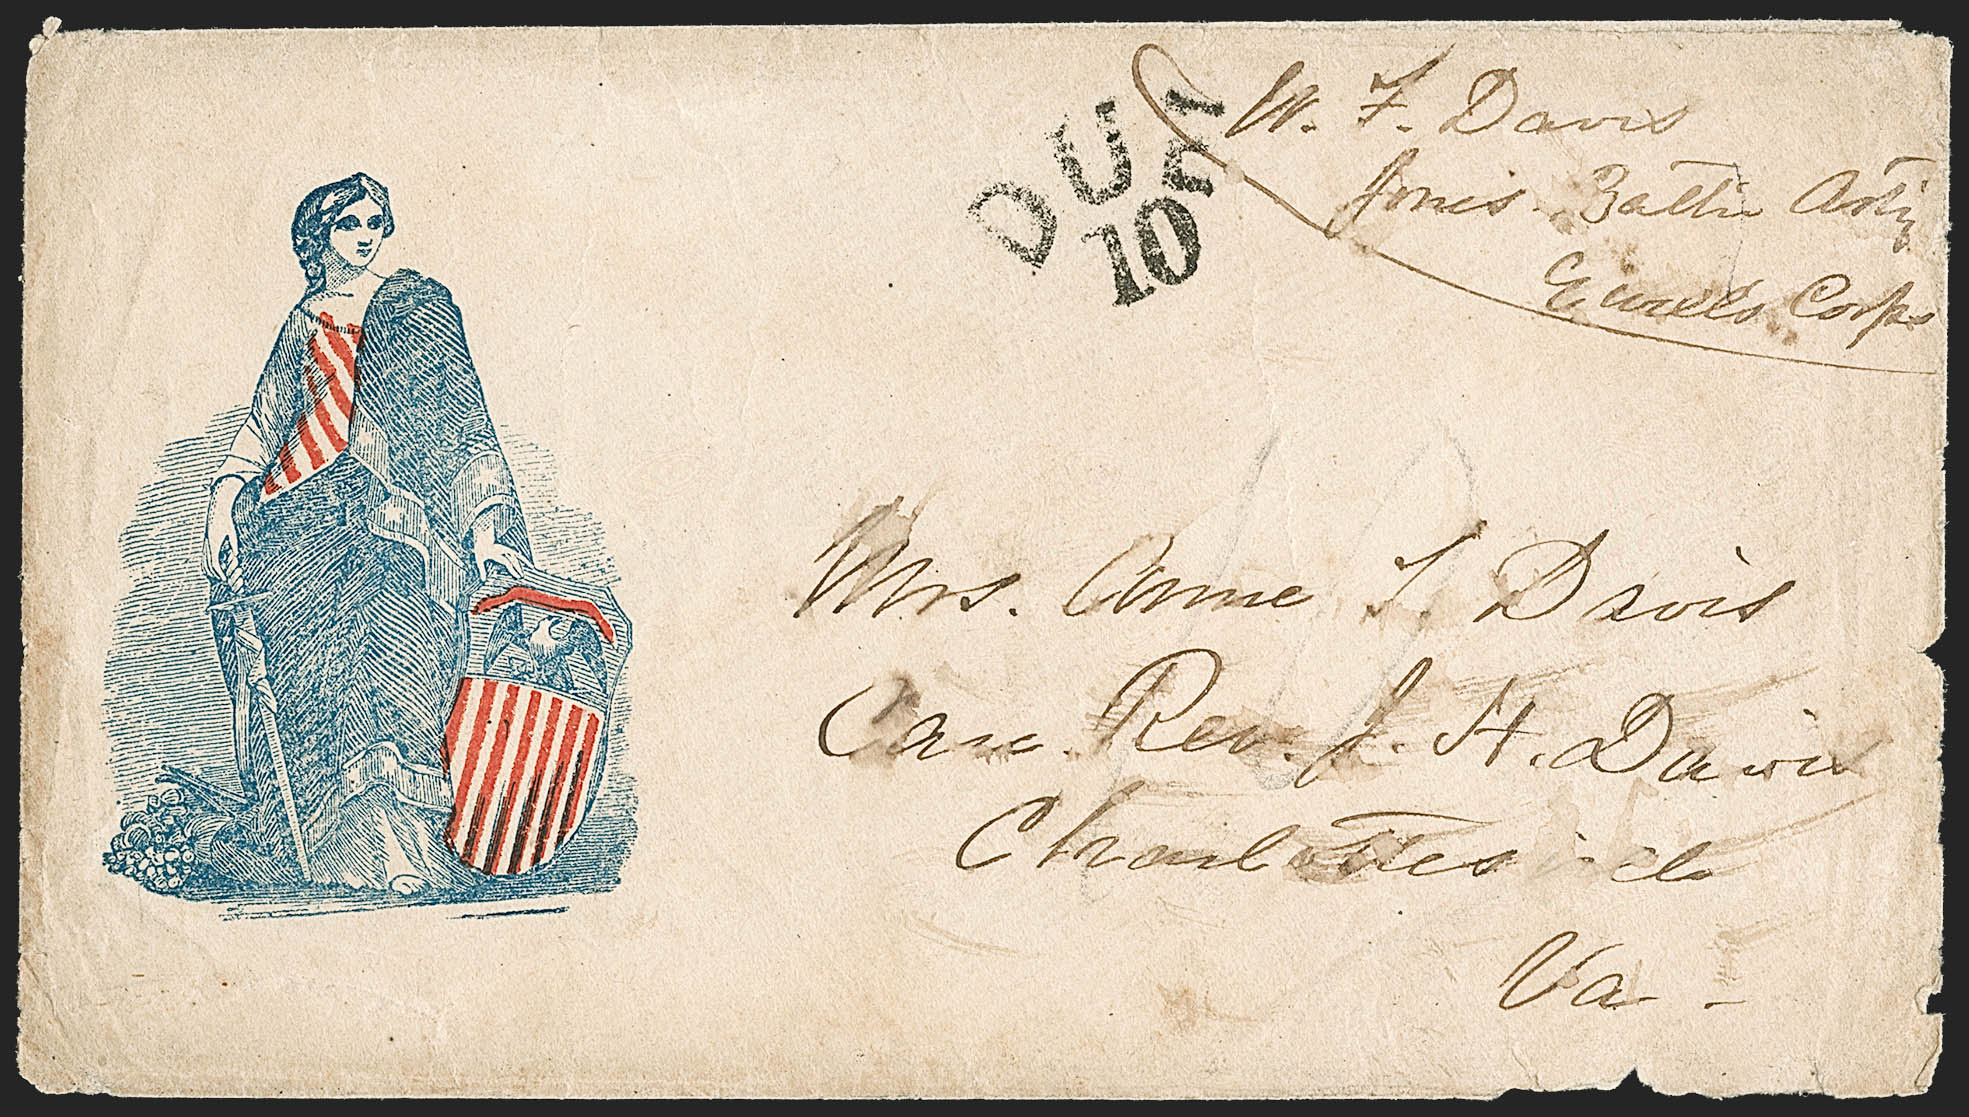 DUE
10
W. F. Davis
Jones Battln Arty
Ewells Corps
Mrs. Annie T. Davis
Care Rev. J. H. Davis
Charlottesville
Va -